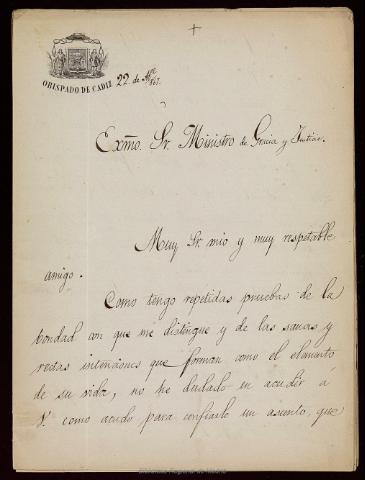 +
OBISPADO DE CADIZ
22 de
867.
Exmo. Sr. Ministro de Gracia y Justicia.
Muy Sr. mio y muy respetable
amigo.
Como tengo repetidas pruebas de la
bondad con que me distingue y de las sanas y
rectas intenciones que forman como el elemento
de su vida, no he dudado en acudir á
V. como acudo para confiarle un asunto, que